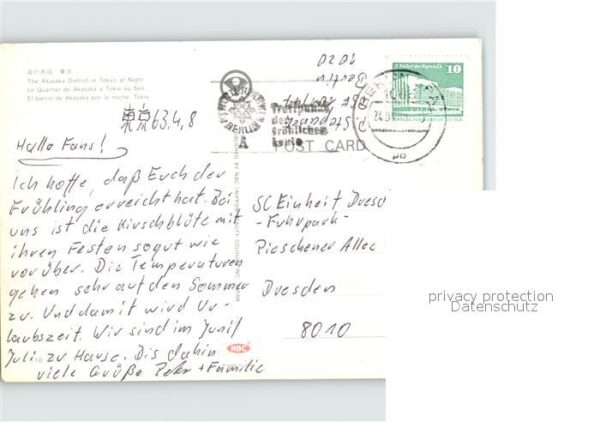 夜の赤坂 東京
The Akasaka District in Tokyo at Night
Le Quartier de Akasaka a Tokio au Soir
El barrio de Akasaka por la noche, Tokio
東京 63.4.8
Hallo Fans!
Ich hoffe, daß Euch der
Frühling erreicht hat. Bei
uns ist die Kirschblüte mit
ihren Festen so gut wie
vorüber. Die Temperaturen
gehen sehr auf den Sommer
zu. Und damit wird Ur-
laubszeit. Wir sind im Juni/
Juli zu Hause. Bis dahin
viele Grüße Peter + Familie
NBC
1020
Berlin
BERLIN
A
Treffpunkt
der
fröhlichen
Leute
POST CARD
Palast der Republik
10
SC Einheit Dresd
- Fuhrpark -
Pieschener Allee
Dresden
8010
privacy protection
Datenschutz